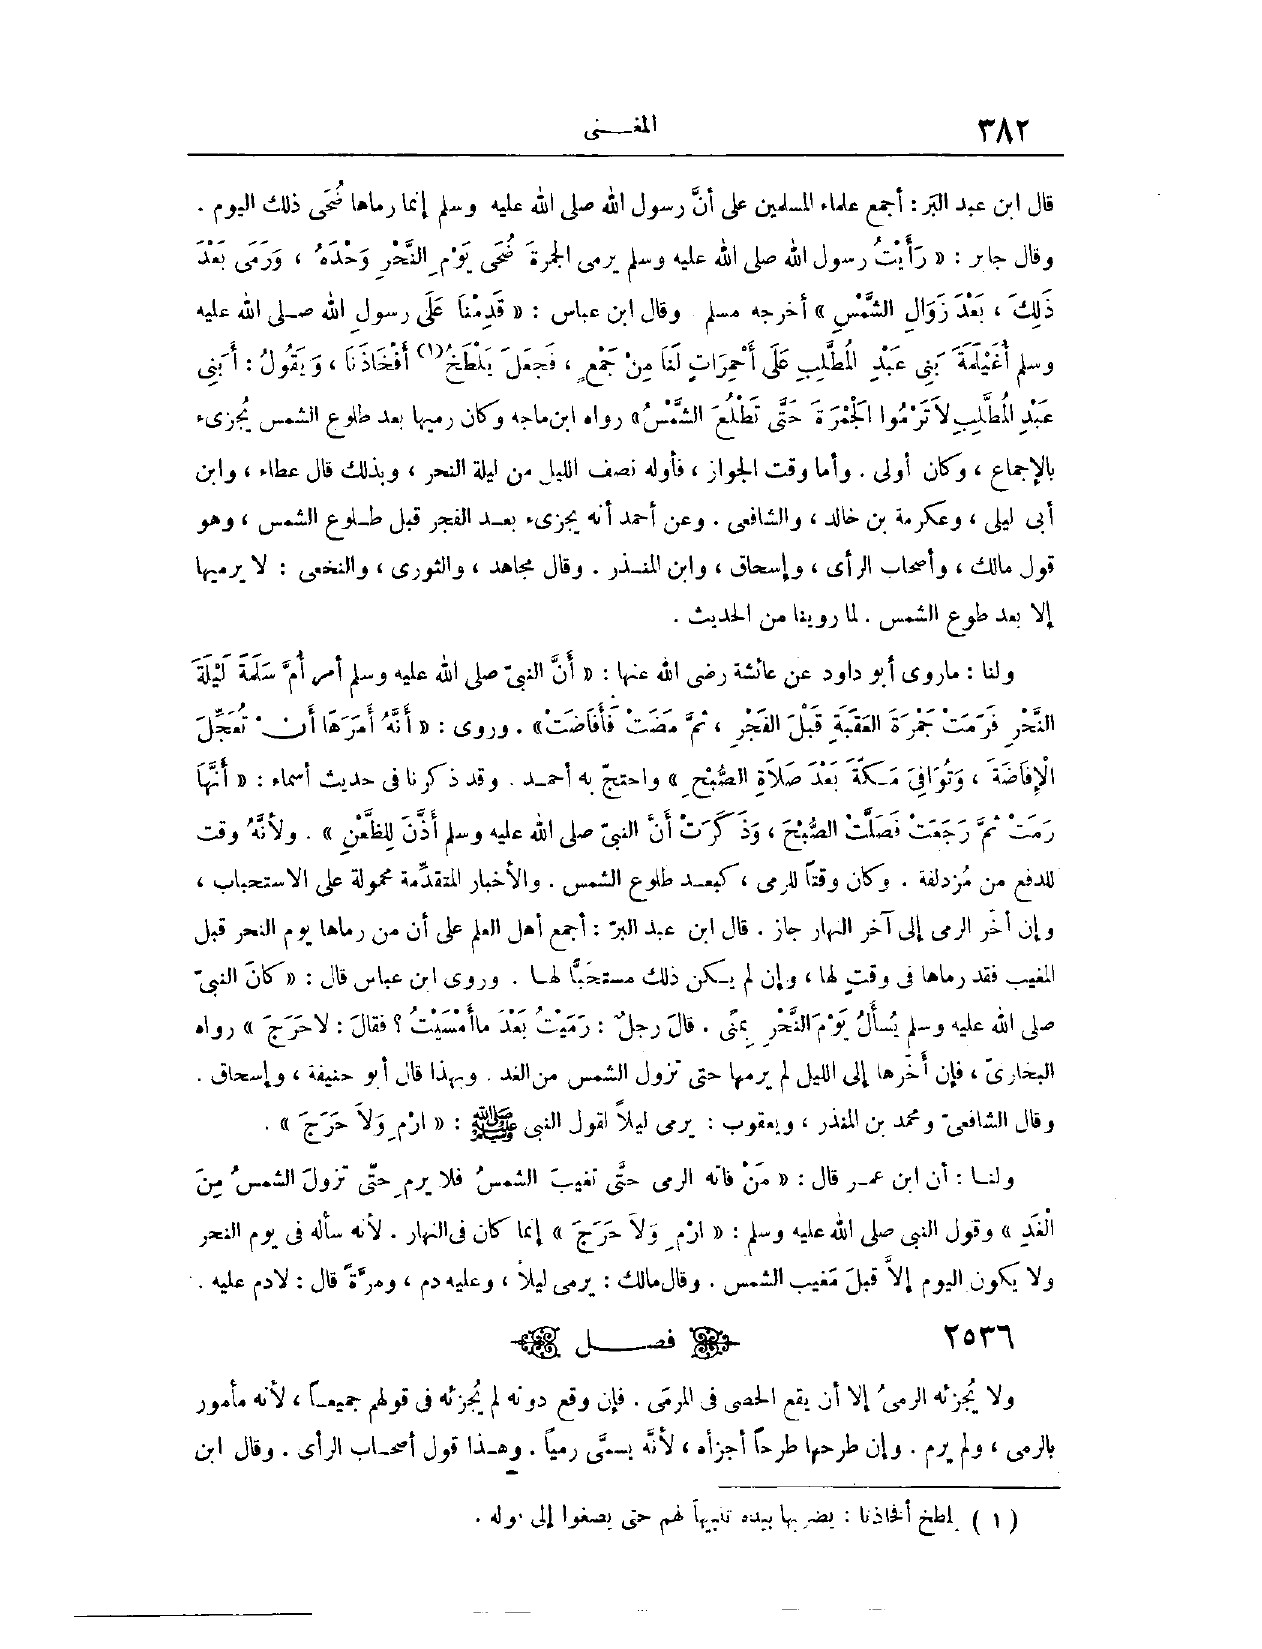 ٣٨٢
المغـــنى
قال ابن عبد البَر : أجمع علماء المسلمين على أنَّ رسول الله صلى الله عليه وسلم إنما رماها ضُحَى ذلك اليوم .
وقال جابر : « رَأَيْتُ رسول الله صلى الله عليه وسلم يرمى الجمرةَ ضُحَى يَوْمِ النَّحْرِ وَحْدَهُ ، وَرَمَى بَعْدَ
ذَلِكَ ، بَعْدَ زَوَالِ الشَّمْسِ » أخرجه مسلم وقال ابن عباس : « قَدِمْنَا عَلَى رسولِ الله صـلى الله عليه
وسلم أُغَيْلِمَةَ بَنِى عبْدِ المُطَّلِبِ عَلَى أَحْمِرَاتٍ لَنَا مِنْ جَمْعٍ ، فَجَعَلَ يَلْطَخُ(١) أَفْخَاذَنَا ، وَيَقُولُ : أَبَنِى
عَبْدِ المُطَّلِبِ لاَ تَرْمُوا الْجَمْرَةَ حَتَّى تَطْلُعَ الشَّمْسُ» رواه ابن ماجه وكان رميها بعد طلوع الشمس يُجزىء
بالإجماع ، وكان أولى . وأما وقت الجواز ، فأوله نصف الليل من ليلة النحر ، وبذلك قال عطاء ، وابن
أبى ليلى ، وعكرمة بن خالد ، والشافعى . وعن أحمد أنه يجزىء بعـد الفجر قبل طـلوع الشمس ، وهو
قول مالك ، وأصحاب الرأى ، وإسحاق ، وابن المنـذر . وقال مجاهد ، والثورى ، والنخعى : لا يرميها
إلا بعد طوع الشمس . لما روينا من الحديث .
ولنا : ماروى أبو داود عن عائشة رضى الله عنها : « أَنَّ النبىّ صلى الله عليه وسلم أمر أُمَّ سَلَمَةَ لَيْلَةَ
النَّحْرِ فَرَمَتْ جَمْرَةَ العَقَبَةِ قَبْلَ الفَجْرِ ، ثمَّ مَضَتْ فَأَفَاضَتْ» . وروى : « أَنَّهُ أَمَرَهَا أَنْ تُعَجِّلَ
الْإِفَاضَةَ ، وَتُوَافِىَ مَـكَّةَ بَعْدَ صَلاَةِ الصُّبْحِ » واحتجّ به أحمـد . وقد ذكرنا فى حديث أسماء : « أَنَّهَا
رَمَتْ ثمَّ رَجَعَتْ فَصَلَّتْ الصُّبْحَ ، وَذَكَرَتْ أَنَّ النبىّ صلى الله عليه وسلم أَذَّنَ لِلظَّعْنِ » . ولأنَّهُ وقت
للدفع من مُزدلفة . وكان وقتاً للرمى ، كبعـد طلوع الشمس . والأخبار المتقدِّمة محمولة على الاستحباب ،
وإن أخَّر الرمى إلى آخر النهار جاز . قال ابن عبد البرّ : أجمع أهل العلم على أن من رماها يوم النحر قبل
المغيب فقد رماها فى وقتٍ لها ، وإن لم يـكن ذلك مسـتحَبًّا لهـا . وروى ابن عباس قال : « كَانَ النبىّ
صلى الله عليه وسلم يُسأَلُ يَوْمَ النَّحْرِ بِمنًى . قالَ رجلٌ : رَمَيْتُ بَعْدَ ماأَمْسَيْتُ ؟ فقالَ : لاحَرَجَ » رواه
البخارىّ ، فإن أخَّرها إلى الليل لم يرمها حتى تزول الشمس من الغد . وبهذا قال أبو حنيفة ، وإسحاق .
وقال الشافعىّ ومحمد بن المنذر ، ويعقوب : يرمى ليلاً لقول النبى ﷺ : « ارْمِ وَلاَ حَرَجَ » .
ولنـا : أن ابن عمـر قال : « مَنْ فاته الرمى حتَّى تغيبَ الشمسُ فلا يرمِ حتّى تزولَ الشمسُ مِنَ
الْغَدِ » وقول النبى صلى الله عليه وسلم : « ارْمِ وَلاَ حَرَجَ » إنما كان فى النهار . لأنه سأله فى يوم النحر
ولا يكون اليوم إلاَّ قبلَ مَغيب الشمس . وقال مالك : يرمى ليلاً ، وعليه دم ، ومرَّةً قال : لادم عليه .
٢٥٣٦
فصــــل
ولا يُجزئه الرمىُ إلا أن يقع الحصى فى المرمَى . فإن وقع دونه لم يُجزئه فى قولهم جميعـاً ، لأنه مأمور
بالرمى ، ولم يرم . وإن طرحها طرحاً أجزأه ، لأنَّه يسمَّى رمياً . وهـذا قول أصحـاب الرأى . وقال ابن
( ١ ) يلطخ أفخاذنا : يضربها بيده تنبيهاً لهم حتى يصغوا إلى قوله .